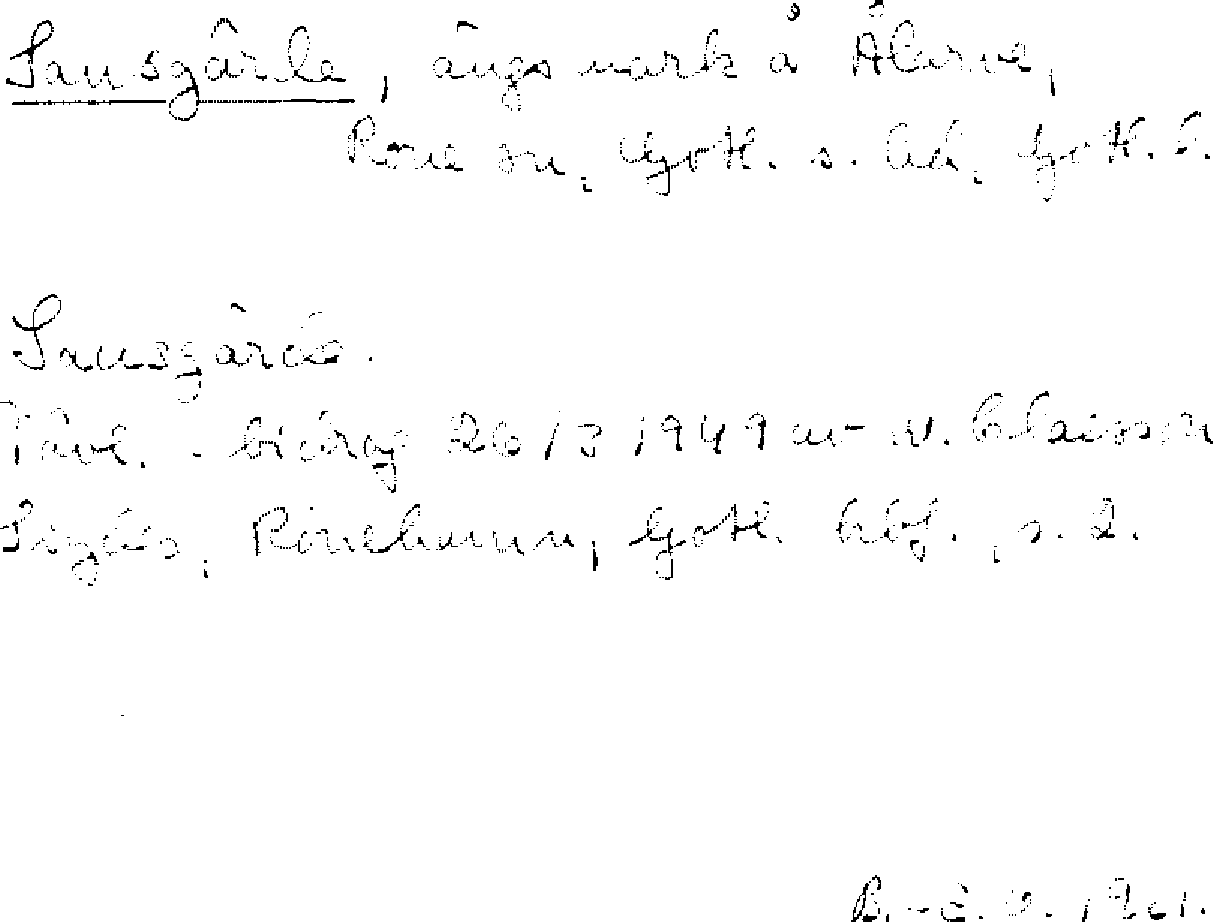 Sausgärde, ängsmark å Älarve,
Rone sn, Gotl. s. hd, Gotl. l.
Sausgärde.
Tävl.-bidrag 26/3 1949 av W. Claesson
Sigdes, Ronehamn, Gotl. hbf., s. 2.
B.-E. O. 1961.